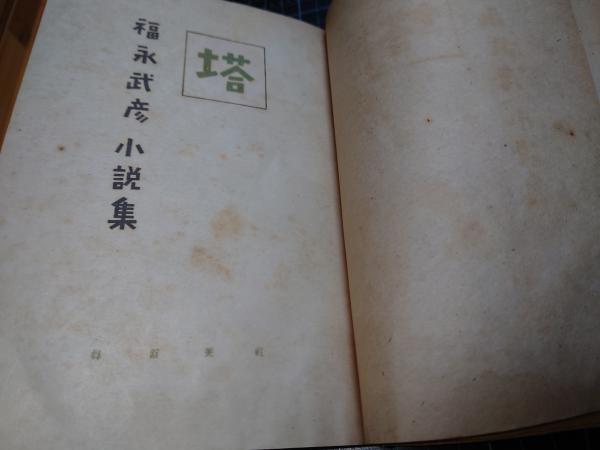 塔
福永武彦小説集